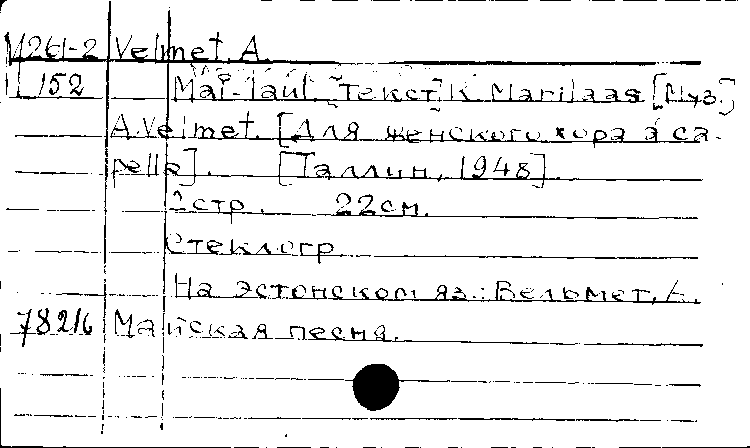 М261-2 Velmet, A.
152 Mai-laul. [Текст] K. Marilaas [Муз.]
A. Velmet. [Для женского хора a ca-
pella]. [Таллин, 1948].
2 стр. 22 см.
Стеклогр
На эстонском яз.: Вельмет, А.
78216 Майская песня.